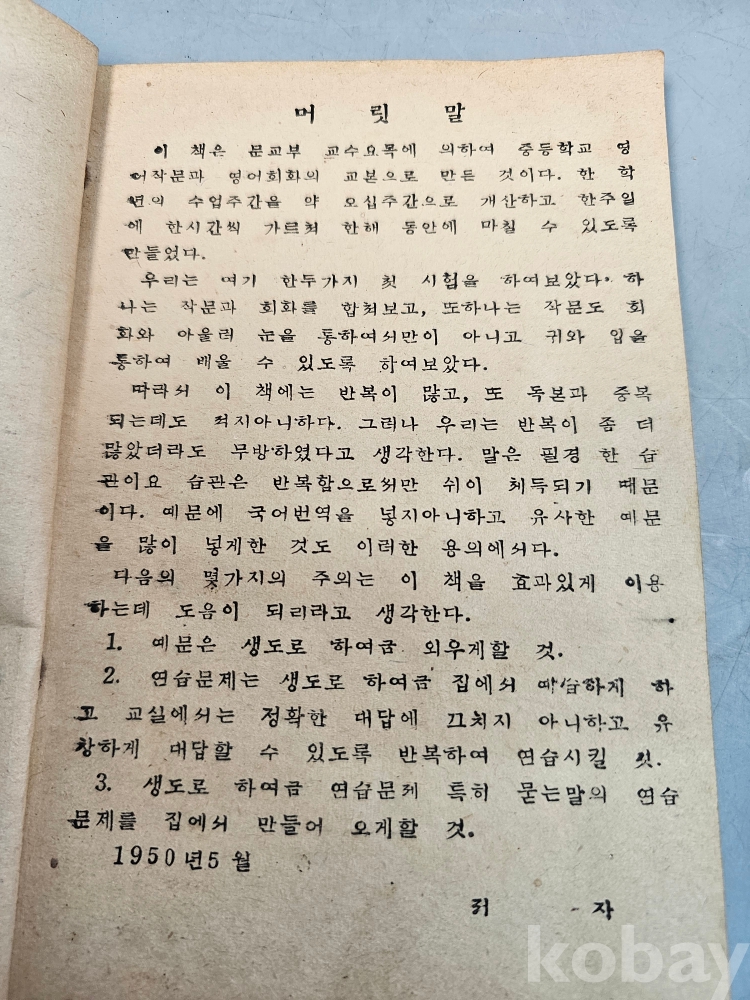 머 릿 말
이 책은 문교부 교수요목에 의하여 중등학교 영
어작문과 영어회화의 교본으로 만든 것이다. 한 학
년의 수업주간을 약 오십주간으로 개산하고 한주일
에 한시간씩 가르쳐 한해 동안에 마칠 수 있도록
만들었다.
우리는 여기 한두가지 첫 시험을 하여보았다. 하
나는 작문과 회화를 합쳐보고, 또하나는 작문도 회
화와 아울러 눈을 통하여서만이 아니고 귀와 입을
통하여 배울 수 있도록 하여보았다.
따라서 이 책에는 반복이 많고, 또 독본과 중복
되는데도 적지아니하다. 그러나 우리는 반복이 좀 더
많았더라도 무방하였다고 생각한다. 말은 필경 한 습
관이요 습관은 반복함으로써만 쉬이 체득되기 때문
이다. 예문에 국어번역을 넣지아니하고 유사한 예문
을 많이 넣게한 것도 이러한 용의에서다.
다음의 몇가지의 주의는 이 책을 효과있게 이용
하는데 도음이 되리라고 생각한다.
1. 예문은 생도로 하여금 외우게할 것.
2. 연습문제는 생도로 하여금 집에서 예습하게 하
고 교실에서는 정확한 대답에 끄치지 아니하고 유
창하게 대답할 수 있도록 반복하여 연습시킬 것.
3. 생도로 하여금 연습문제 특히 묻는말의 연습
문제를 집에서 만들어 오게할 것.
1950년5월
저 자
kobay